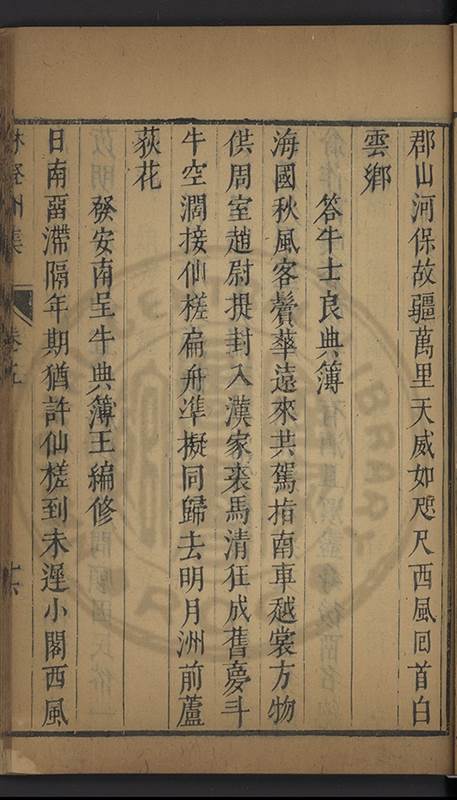 郡山河保故疆萬里天威如咫尺西風回首白
雲鄉
答牛士良典簿
海國秋風客鬢華遠來共駕指南車越裳方物
供周室趙尉提封入漢家裘馬清狂成舊夢斗
牛空濶接仙槎扁舟準擬同歸去明月洲前蘆
荻花
發安南呈牛典簿王編修
日南畱滯隔年期猶許仙槎到未遲小閣西風